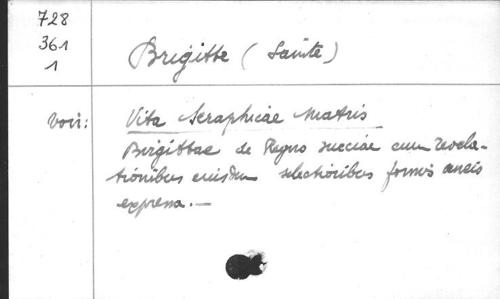 728
361
1
Brigitte (Sainte)
voir:
Vita Seraphicae Matris
Birgittae de Regno sueciae cum revela-
tionibus eiusdem selectioribus formis aeneis
expressa.—